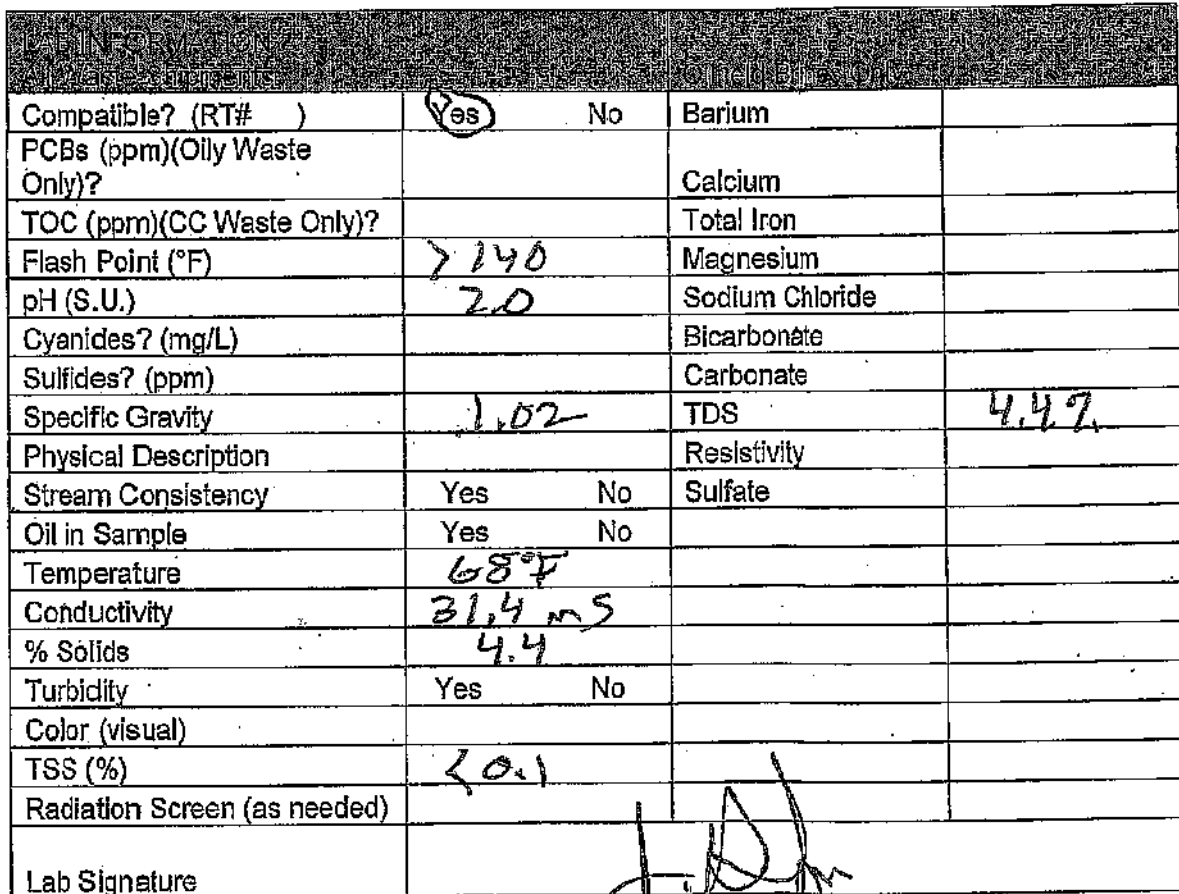 LAB INFORMATION
All Waste Shipments Oilfield Brines Only
Compatible? (RT# ) Yes No Barium
PCBs (ppm)(Oily Waste
Only)? Calcium
TOC (ppm)(CC Waste Only)? Total Iron
Flash Point (°F) > 140 Magnesium
pH (S.U.) 2.0 Sodium Chloride
Cyanides? (mg/L) Bicarbonate
Sulfides? (ppm) Carbonate
Specific Gravity 1.02 TDS 4.4%
Physical Description Resistivity
Stream Consistency Yes No Sulfate
Oil in Sample Yes No
Temperature 68°F
Conductivity 31.4 mS
% Solids 4.4
Turbidity Yes No
Color (visual)
TSS (%) < 0.1
Radiation Screen (as needed)
Lab Signature